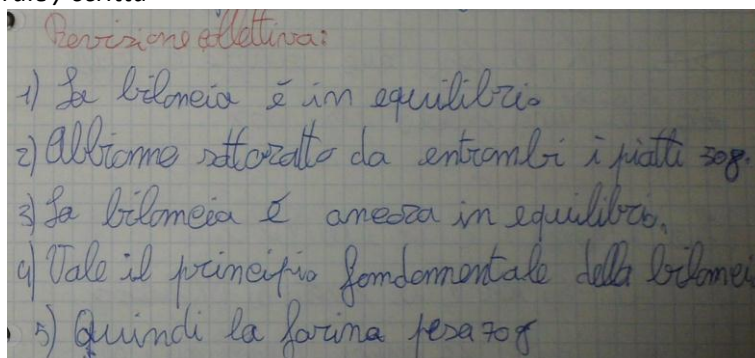 Revisione collettiva:
1) La bilancia è in equilibrio
2) Abbiamo sottratto da entrambi i piatti 30g.
3) La bilancia è ancora in equilibrio.
4) Vale il principio fondamentale della bilanci
5) Quindi la farina pesa 70g